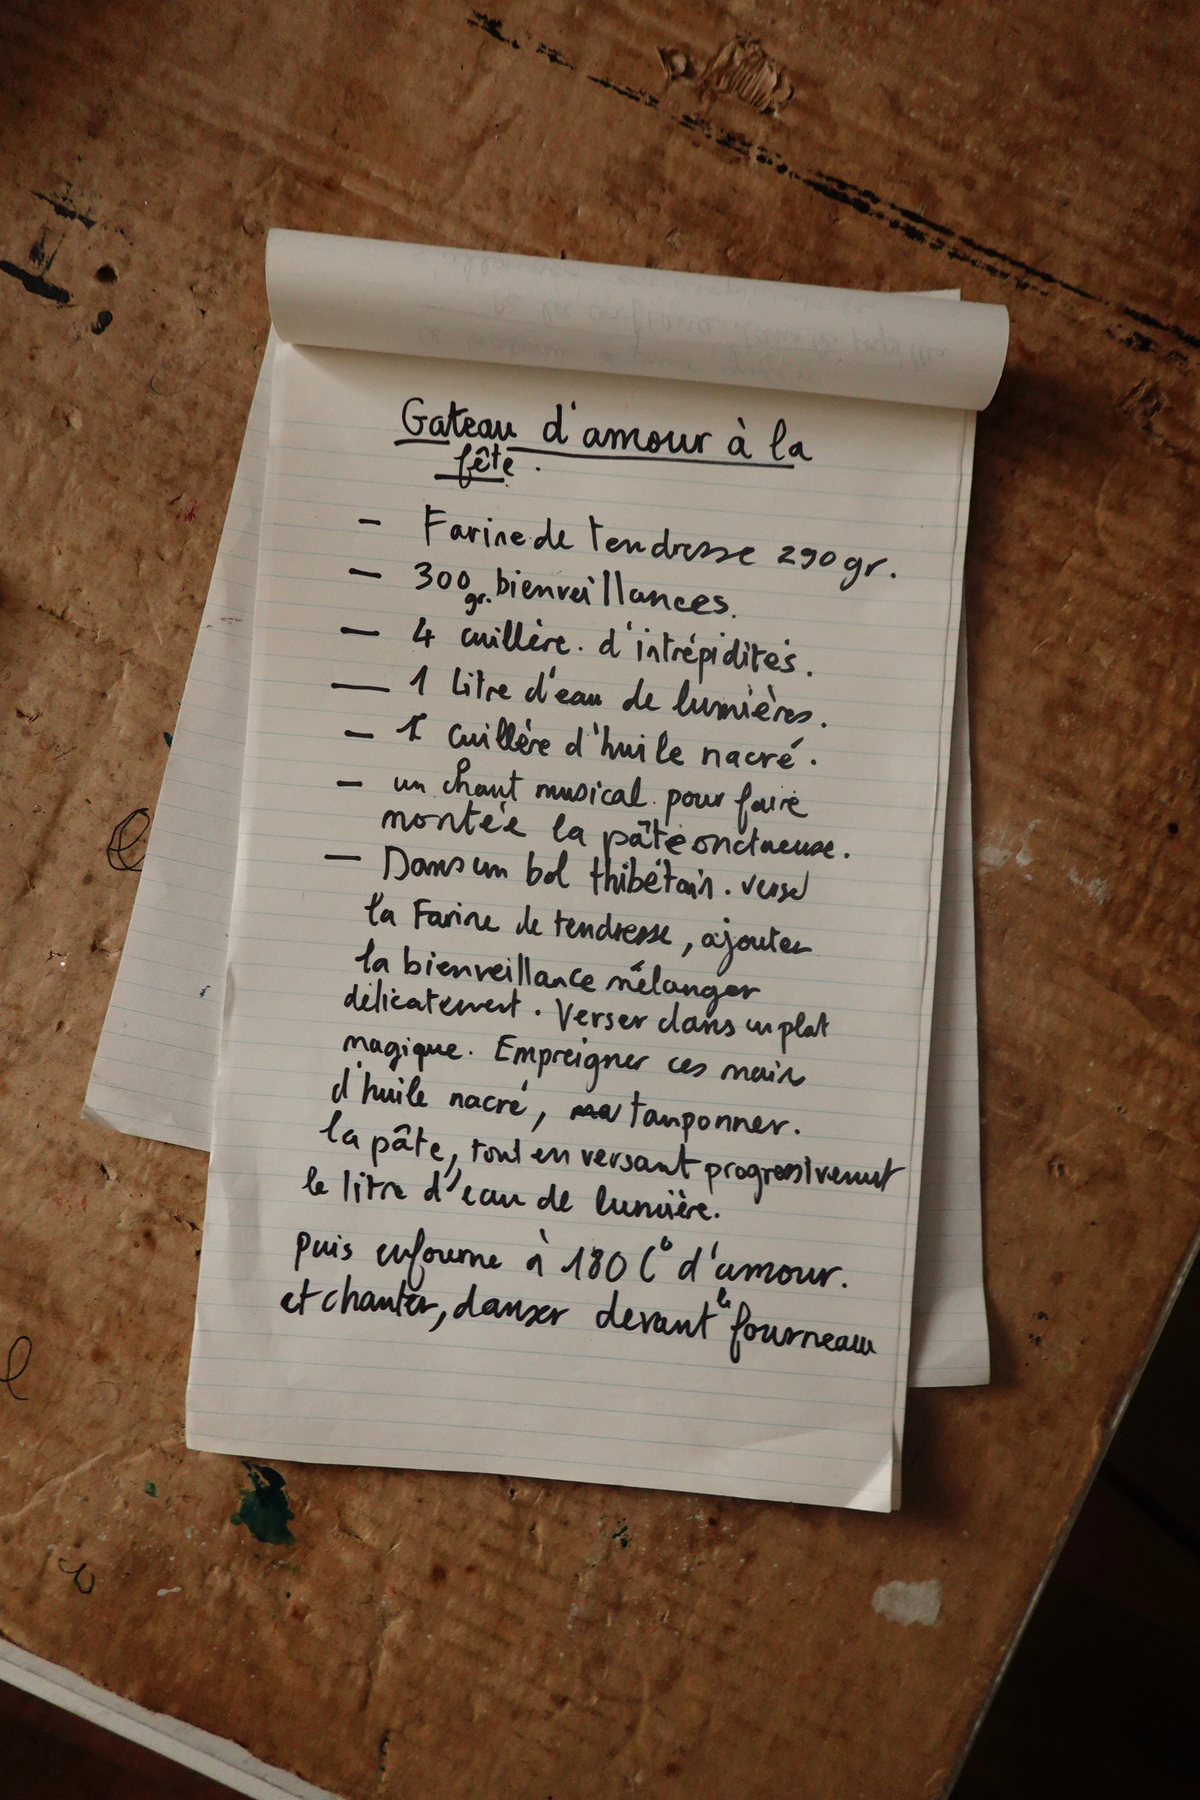 Gateau d'amour à la
fête.
— Farine de tendresse 290 gr.
— 300 gr. bienveillances.
— 4 cuillère. d'intrépidités.
— 1 Litre d'eau de lumières.
— 1 cuillère d'huile nacré.
— un chant musical pour faire
montée la pâte onctueuse.
— Dans un bol thibétain. verse
la Farine de tendresse, ajouter
la bienveillance mélanger
délicatement. Verser dans un plat
magique. Empreigner ces main
d'huile nacré, tamponner.
la pâte, tout en versant progressivement
le litre d'eau de lumière.
puis enfourne à 180 C° d'amour.
et chanter, danser devant le fourneau